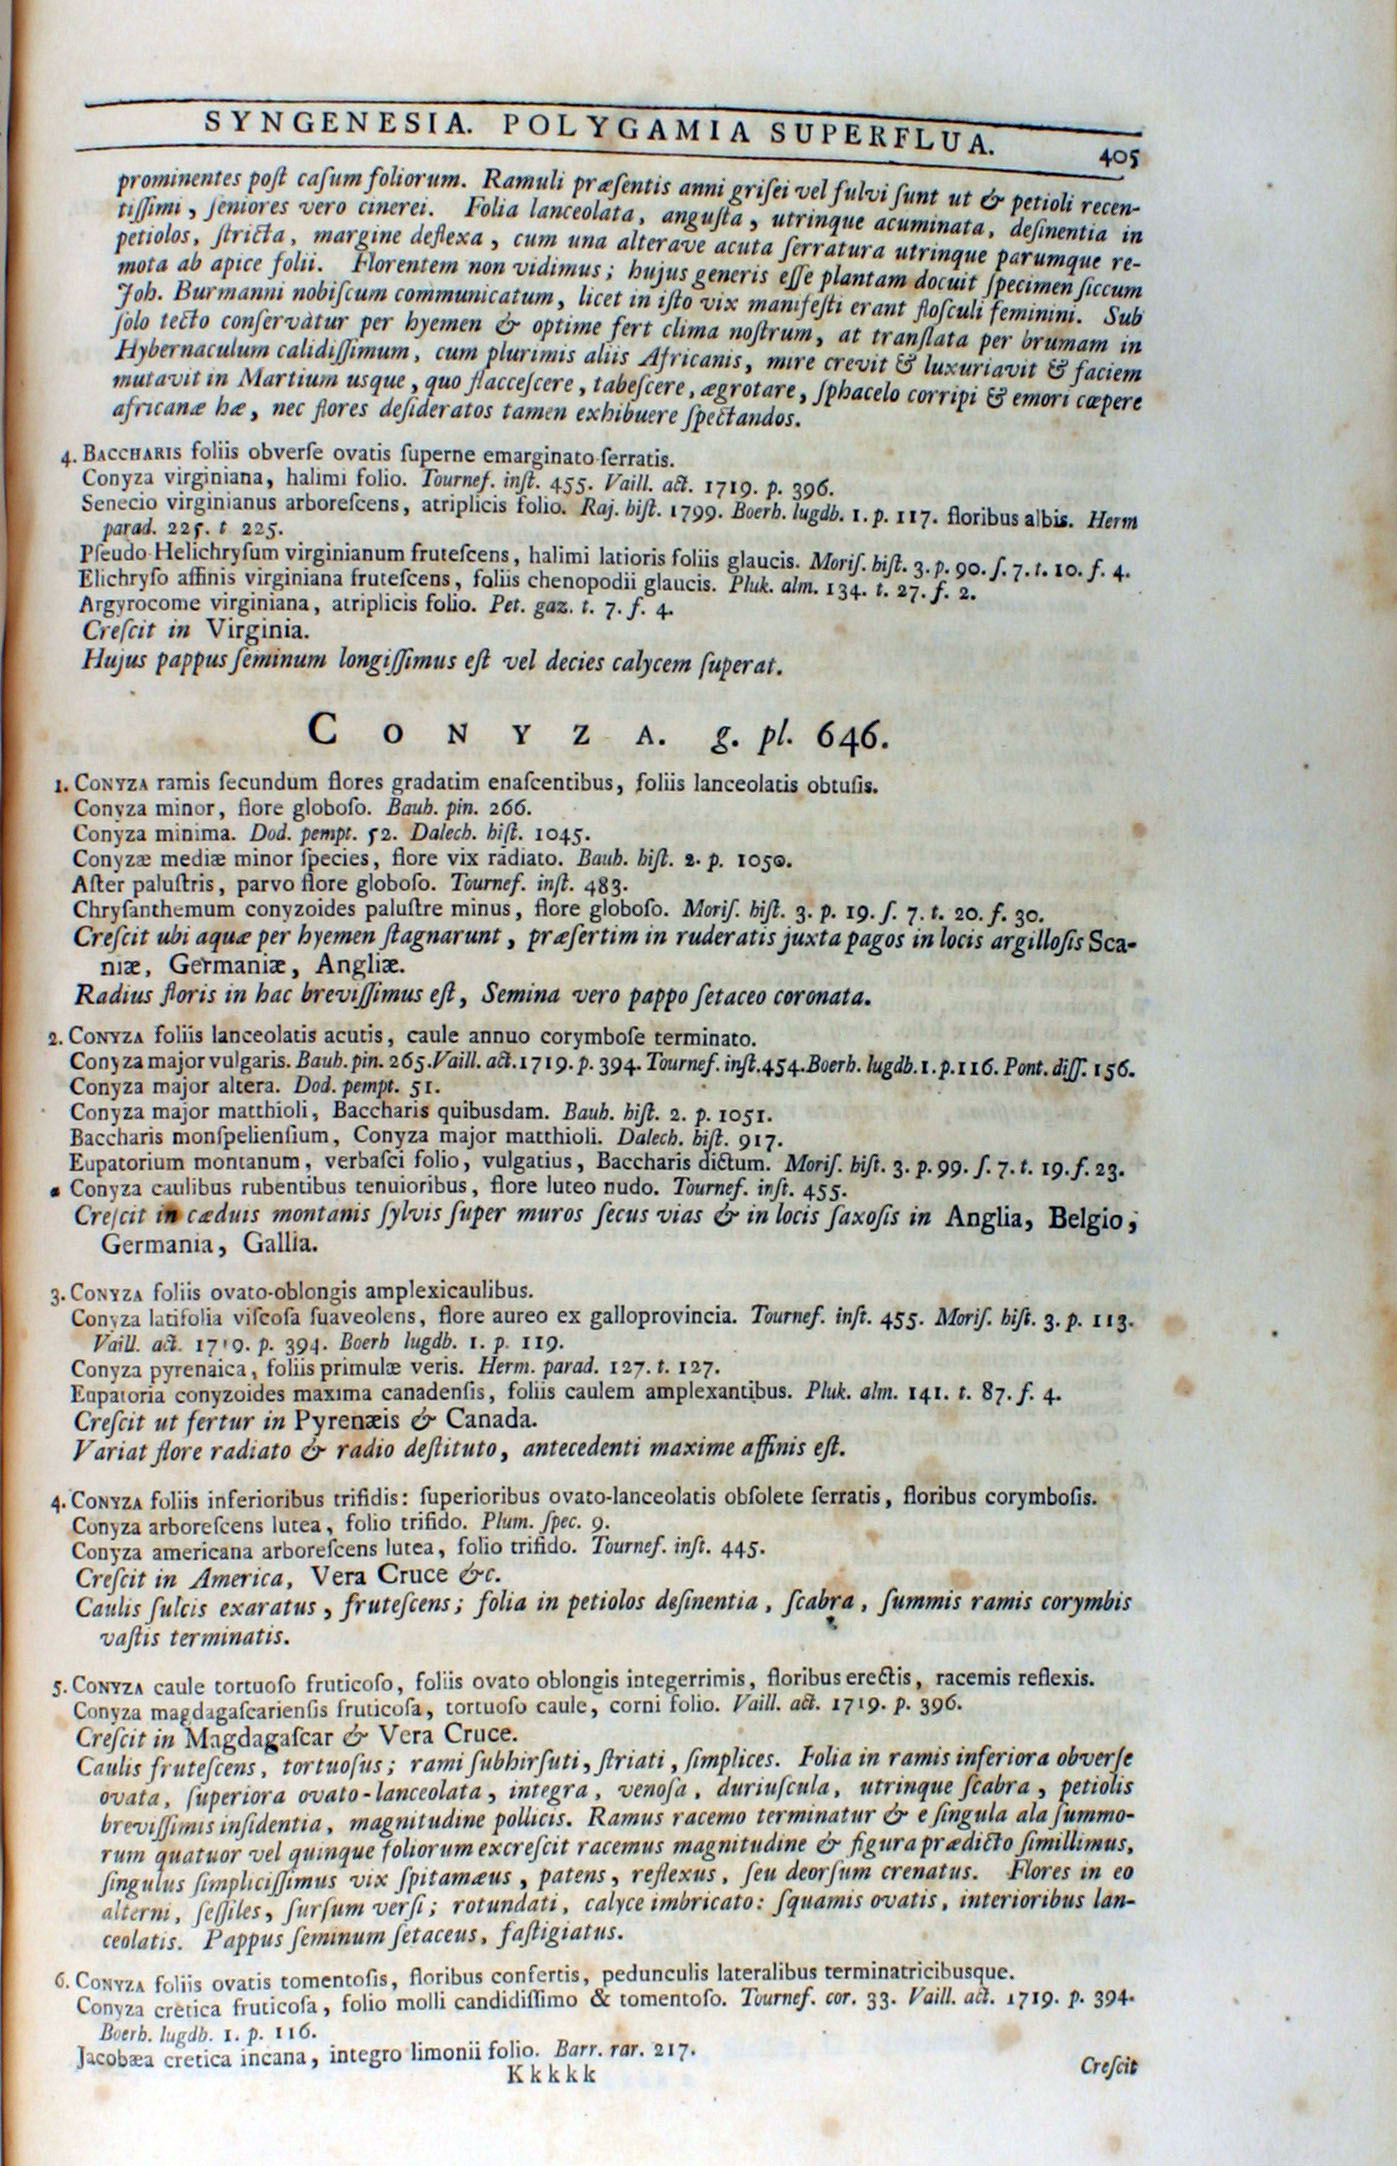 SYNGENESIA. POLYGAMIA SUPERFLUA. 405
prominentes poſt caſum foliorum. Ramuli præſentis anni griſei vel fulvi ſunt ut & petioli recen-
tiſſimi, ſeniores vero cinerei. Folia lanceolata, anguſta, utrinque acuminata, deſinentia in
petiolos, ſtricta, margine deflexa, cum una alterave acuta ſerratura utrinque parumque re-
mota ab apice folii. Florentem non vidimus; hujus generis eſſe plantam docuit ſpecimen ſiccum
Joh. Burmanni nobiſcum communicatum, licet in iſto vix manifeſti erant floſculi feminini. Sub
ſolo tecto conſervàtur per hyemen & optime fert clima noſtrum, at tranſlata per brumam in
Hybernaculum calidiſſimum, cum plurimis aliis Africanis, mire crevit & luxuriavit & faciem
mutavit in Martium usque, quo flacceſcere, tabeſcere, ægrotare, ſphacelo corripi & emori cœpere
africanæ hæ, nec flores deſideratos tamen exhibuere ſpectandos.
4. BACCHARIS foliis obverſe ovatis ſuperne emarginato-ſerratis.
Conyza virginiana, halimi folio. Tournef. inſt. 455. Vaill. act. 1719. p. 396.
Senecio virginianus arboreſcens, atriplicis folio. Raj. hiſt. 1799. Boerh. lugdb. 1. p. 117. floribus albis. Herm
parad. 225. t 225.
Pſeudo-Helichryſum virginianum fruteſcens, halimi latioris foliis glaucis. Moriſ. hiſt. 3. p. 90. ſ. 7. t. 10. f. 4.
Elichryſo affinis virginiana fruteſcens, foliis chenopodii glaucis. Pluk. alm. 134. t. 27. f. 2.
Argyrocome virginiana, atriplicis folio. Pet. gaz. t. 7. f. 4.
Creſcit in Virginia.
Hujus pappus ſeminum longiſſimus eſt vel decies calycem ſuperat.
CONYZA. g. pl. 646.
1. CONYZA ramis ſecundum flores gradatim enaſcentibus, foliis lanceolatis obtuſis.
Conyza minor, flore globoſo. Bauh. pin. 266.
Conyza minima. Dod. pempt. 52. Dalech. hiſt. 1045.
Conyzæ mediæ minor ſpecies, flore vix radiato. Bauh. hiſt. 2. p. 1050.
Aſter paluſtris, parvo flore globoſo. Tournef. inſt. 483.
Chryſanthemum conyzoides paluſtre minus, flore globoſo. Moriſ. hiſt. 3. p. 19. ſ. 7. t. 20. f. 30.
Creſcit ubi aquæ per hyemen ſtagnarunt, præſertim in ruderatis juxta pagos in locis argilloſis Sca-
niæ, Germaniæ, Angliæ.
Radius floris in hac breviſſimus eſt, Semina vero pappo ſetaceo coronata.
2. CONYZA foliis lanceolatis acutis, caule annuo corymboſe terminato.
Conyza major vulgaris. Bauh. pin. 265. Vaill. act. 1719. p. 394. Tournef. inſt. 454. Boerh. lugdb. 1. p. 116. Pont. diſſ. 156.
Conyza major altera. Dod. pempt. 51.
Conyza major matthioli, Baccharis quibusdam. Bauh. hiſt. 2. p. 1051.
Baccharis monſpelienſium, Conyza major matthioli. Dalech. hiſt. 917.
Eupatorium montanum, verbaſci folio, vulgatius, Baccharis dictum. Moriſ. hiſt. 3. p. 99. ſ. 7. t. 19. f. 23.
Conyza caulibus rubentibus tenuioribus, flore luteo nudo. Tournef. inſt. 455.
Creſcit in cæduis montanis ſylvis ſuper muros ſecus vias & in locis ſaxoſis in Anglia, Belgio,
Germania, Gallia.
3. CONYZA foliis ovato-oblongis amplexicaulibus.
Conyza latifolia viſcoſa ſuaveolens, flore aureo ex galloprovincia. Tournef. inſt. 455. Moriſ. hiſt. 3. p. 113.
Vaill. act. 1719. p. 394. Boerh lugdb. 1. p. 119.
Conyza pyrenaica, foliis primulæ veris. Herm. parad. 127. t. 127.
Eupatoria conyzoides maxima canadenſis, foliis caulem amplexantibus. Pluk. alm. 141. t. 87. f. 4.
Creſcit ut fertur in Pyrenæis & Canada.
Variat flore radiato & radio deſtituto, antecedenti maxime affinis eſt.
4. CONYZA foliis inferioribus trifidis: ſuperioribus ovato-lanceolatis obſolete ſerratis, floribus corymboſis.
Conyza arboreſcens lutea, folio trifido. Plum. ſpec. 9.
Conyza americana arboreſcens lutea, folio trifido. Tournef. inſt. 445.
Creſcit in America, Vera Cruce &c.
Caulis ſulcis exaratus, fruteſcens; folia in petiolos deſinentia, ſcabra, ſummis ramis corymbis
vaſtis terminatis.
5. CONYZA caule tortuoſo fruticoſo, foliis ovato oblongis integerrimis, floribus erectis, racemis reflexis.
Conyza magdagaſcarienſis fruticoſa, tortuoſo caule, corni folio. Vaill. act. 1719. p. 396.
Creſcit in Magdagaſcar & Vera Cruce.
Caulis fruteſcens, tortuoſus; rami ſubhirſuti, ſtriati, ſimplices. Folia in ramis inferiora obverſe
ovata, ſuperiora ovato-lanceolata, integra, venoſa, duriuſcula, utrinque ſcabra, petiolis
breviſſimis inſidentia, magnitudine pollicis. Ramus racemo terminatur & e ſingula ala ſummo-
rum quatuor vel quinque foliorum excreſcit racemus magnitudine & figura prædicto ſimillimus,
ſingulus ſimpliciſſimus vix ſpitamæus, patens, reflexus, ſeu deorſum crenatus. Flores in eo
alterni, ſeſſiles, ſurſum verſi; rotundati, calyce imbricato: ſquamis ovatis, interioribus lan-
ceolatis. Pappus ſeminum ſetaceus, faſtigiatus.
6. CONYZA foliis ovatis tomentoſis, floribus confertis, pedunculis lateralibus terminatricibusque.
Conyza cretica fruticoſa, folio molli candidiſſimo & tomentoſo. Tournef. cor. 33. Vaill. act. 1719. p. 394.
Boerh. lugdb. 1. p. 116.
Jacobæa cretica incana, integro limonii folio. Barr. rar. 217.
Kkkkk Creſcit